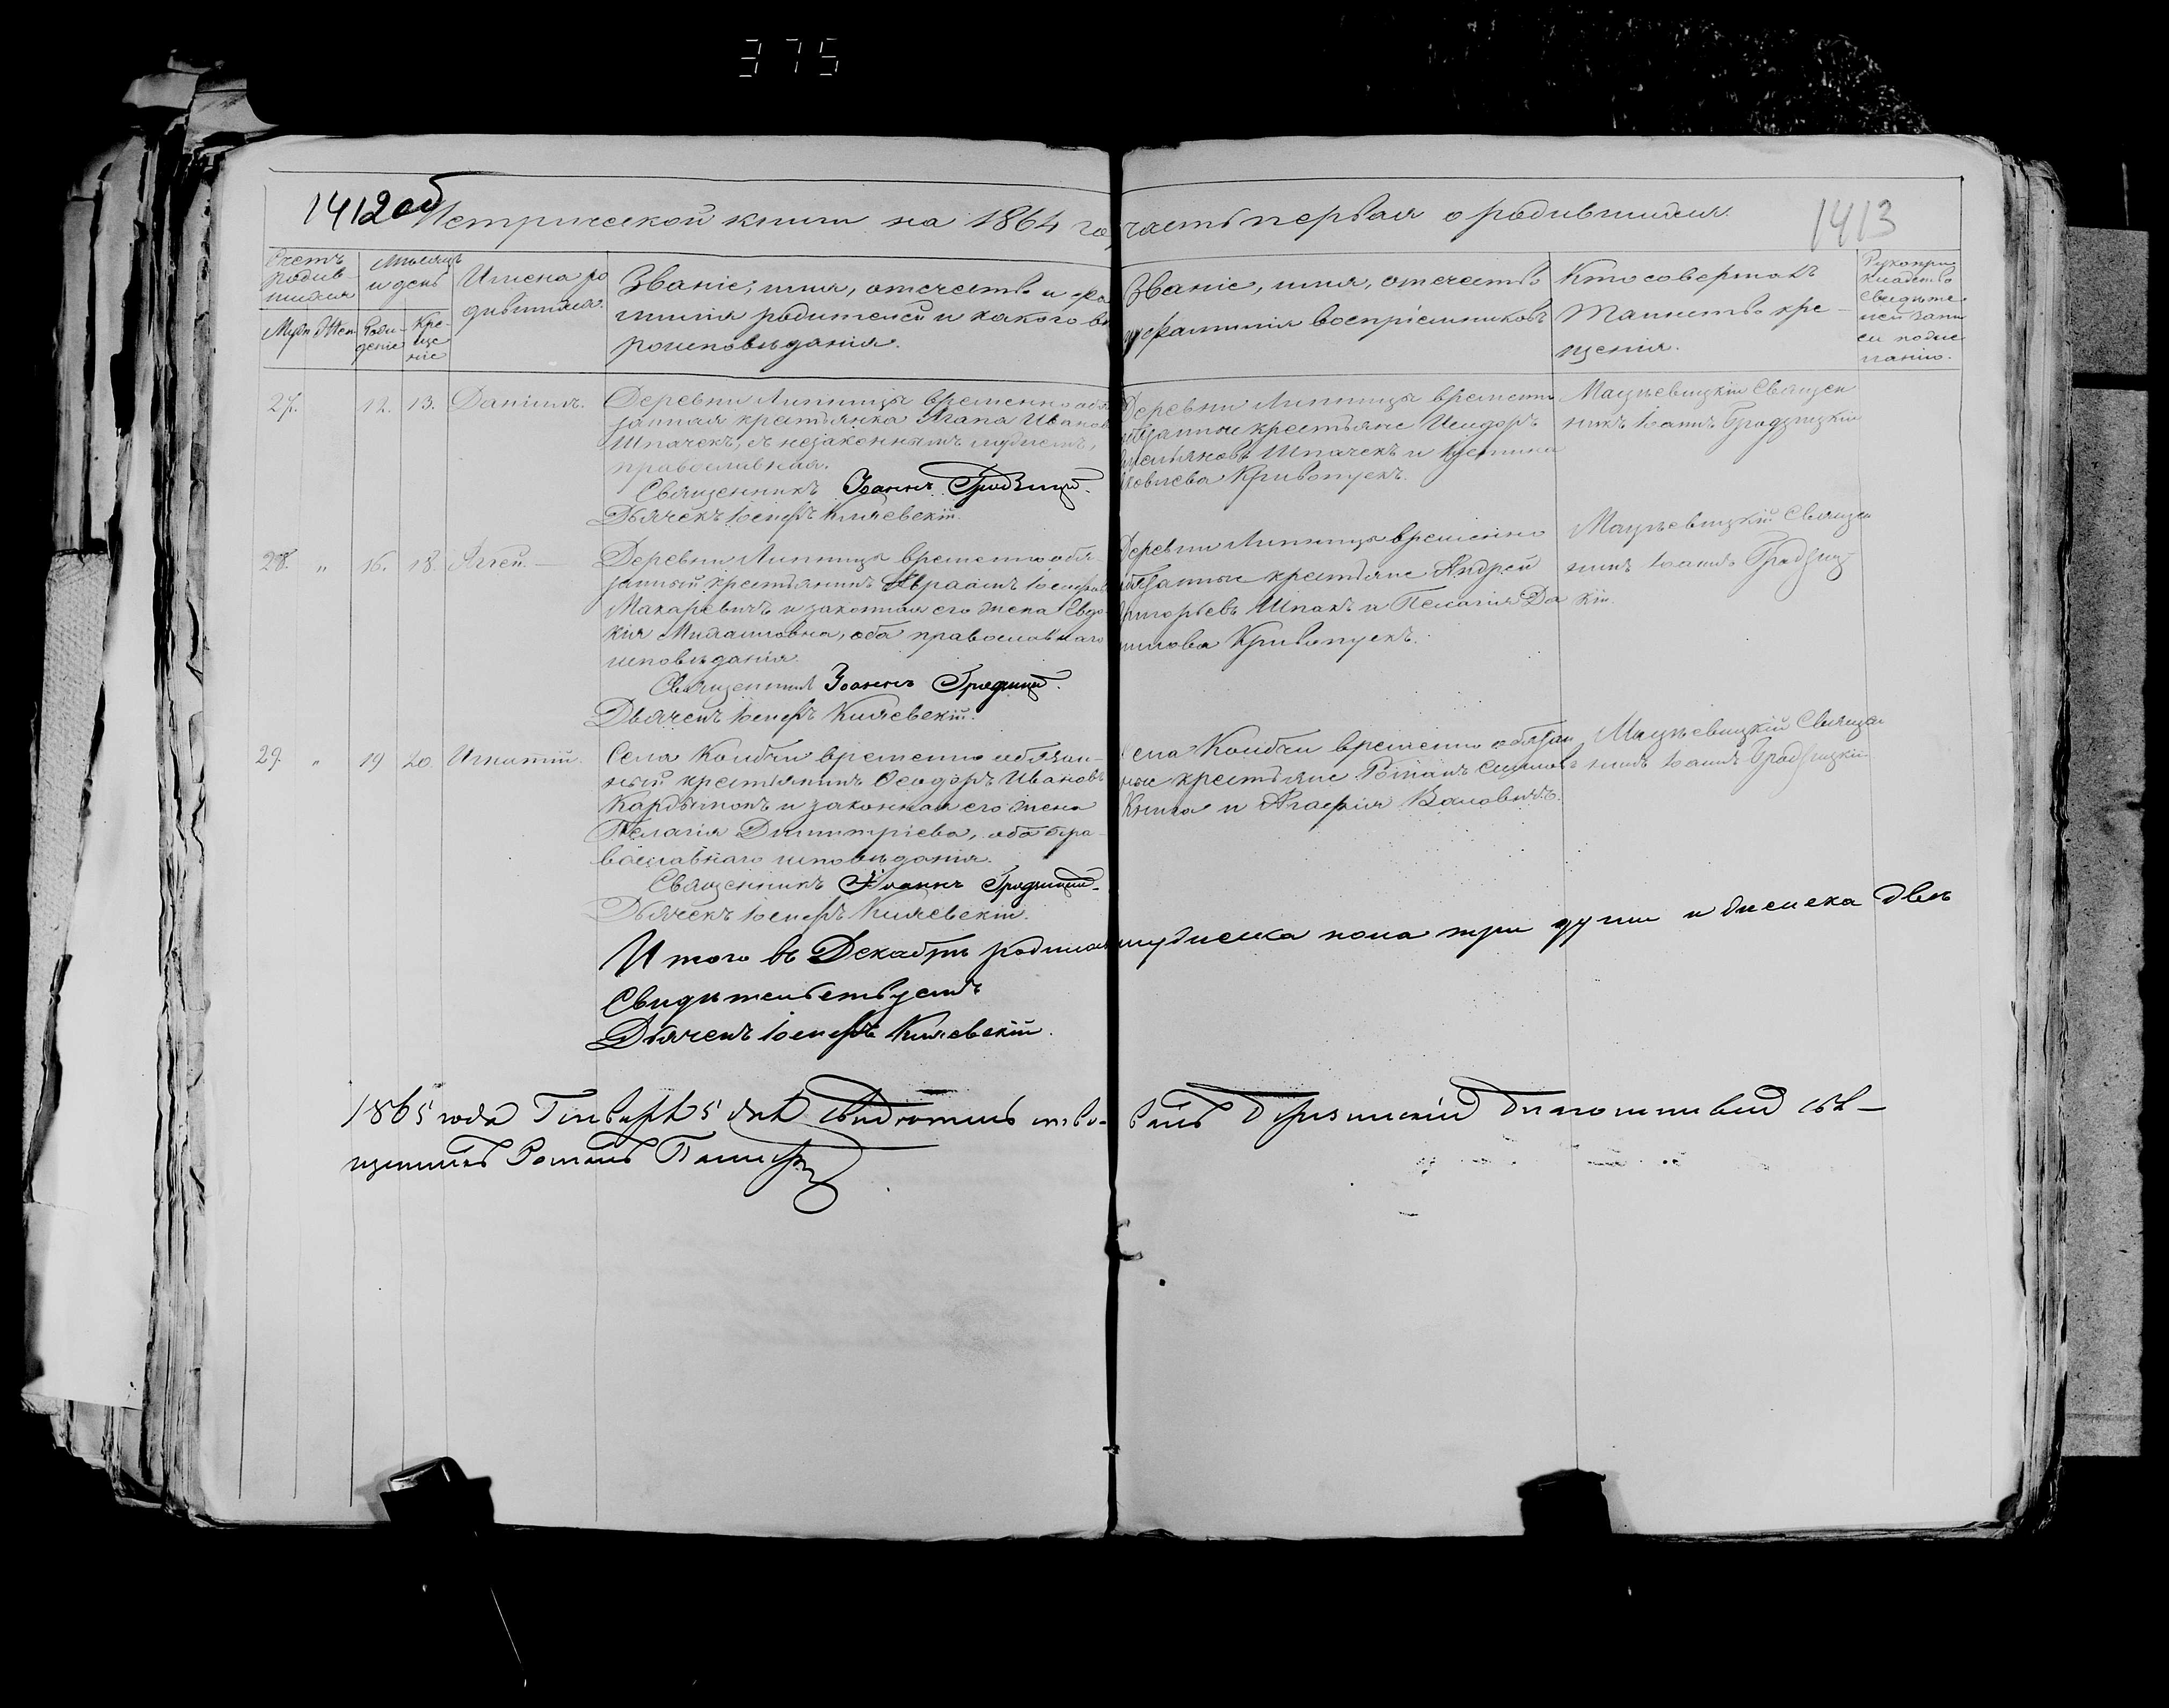 375
1412об
Метрической книги на 1864 го
часть первая о родившихся.
1413
Счетъ
родив-
шихся
Мѣсяцъ
и день
Имена ро
дившихся.
Званіе, имя, отечество и фа
милія родителей и какого вѣ
роисповѣданія.
Муж. Жен.
Рож-
деніе
Кре-
ще
ніе
Званіе, имя, отечество
и фамилія воспріемниковъ
Кто совершалъ
таинство кре-
щенія.
Рукопри
кладство
свидѣте
лей запи
си по же
ланію.
27.
12.
13.
Даніилъ.
Деревни Липницы временно обя
занная крестьянка Агапа Иванов
Шпачекъ, съ незаконнымъ мужемъ,
православная.
Священникъ Іоаннъ Гродзицкій.
Дьячекъ Іосифъ Киаевскій.
Деревни Липницы временно
обязанные крестьяне Исидоръ
Шпачекъ и Устина
Яковлева Кривопускъ.
Мацѣевицкій Священ
никъ Іоаннъ Гродзицкій
28.
"
16.
18.
Аггей.
Деревни Липницы временно обя-
занный крестьянинъ Авраамъ Іосифовъ
Макаревичъ и законная его жена Евдо
кія Михаиловна, оба православнаго
исповѣданія.
Священникъ Іоаннъ Гродзицкій.
Дьячекъ Іосифъ Киаевскій.
Деревни Липницы временно
обязанные крестьяне Андрей
Григорьевъ Шпакъ и Пелагія Да
нилова Кривопускъ.
Мацѣевицкій Священ
никъ Іоаннъ Гродзиц
кій.
29.
"
19
20
Игнатій.
Села Колбчи временно обязан-
ный крестьянинъ Ѳеодоръ Ивановъ
Кардымонъ и законная его жена
Пелагія Димитріева, оба пра-
вославнаго исповѣданія.
Священникъ Іоаннъ Гродзицкій.
Дьячекъ Іосифъ Киаевскій.
Села Колбчи временно обязан
ные крестьяне Романъ
и Агафія
Мацѣевицкій Священ
никъ Іоаннъ Гродзицкій
Итого въ Декабрѣ родилось мужеска пола три души и женска двѣ
Свидѣтельствуемъ
Дьячекъ Іосифъ Киаевскій.
1865 года Генваря 5 дня свидѣтельство-
валъ Березинскій благочинный свя-
щенникъ Романъ